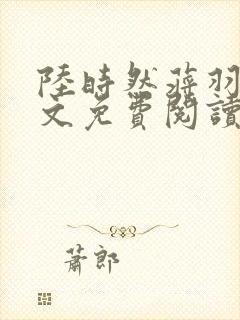 陸時然蔣羽
文免費閱讀
蕭郎